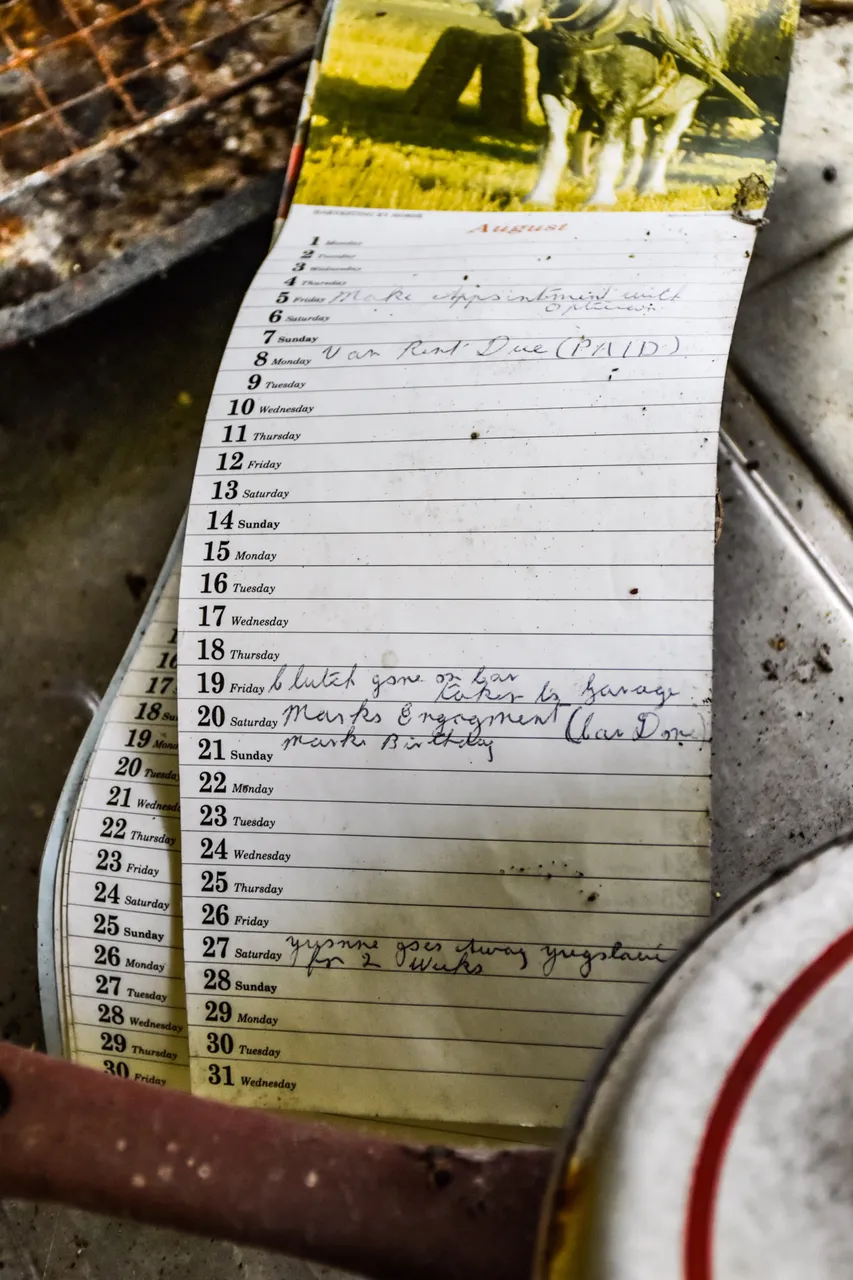 HARVESTING BY HORSE
August
1 Monday
2 Tuesday
3 Wednesday
4 Thursday
5 Friday Make Appointment with
6 Saturday
7 Sunday
8 Monday Van Rent Due (PAID)
9 Tuesday
10 Wednesday
11 Thursday
12 Friday
13 Saturday
14 Sunday
15 Monday
16 Tuesday
17 Wednesday
18 Thursday
19 Friday Clutch gone on Car
taken to Garage
20 Saturday Marks Engagment (Car Done)
21 Sunday Marks Birthday
22 Monday
23 Tuesday
24 Wednesday
25 Thursday
26 Friday
27 Saturday Yvonne goes Away Yugslavie
for 2 Weeks
28 Sunday
29 Monday
30 Tuesday
31 Wednesday
1
16
17
18 Su
19 Mon
20 Tuesday
21 Wednesd
22 Thursday
23 Friday
24 Saturday
25 Sunday
26 Monday
27 Tuesday
28 Wednesday
29 Thursday
30 Friday